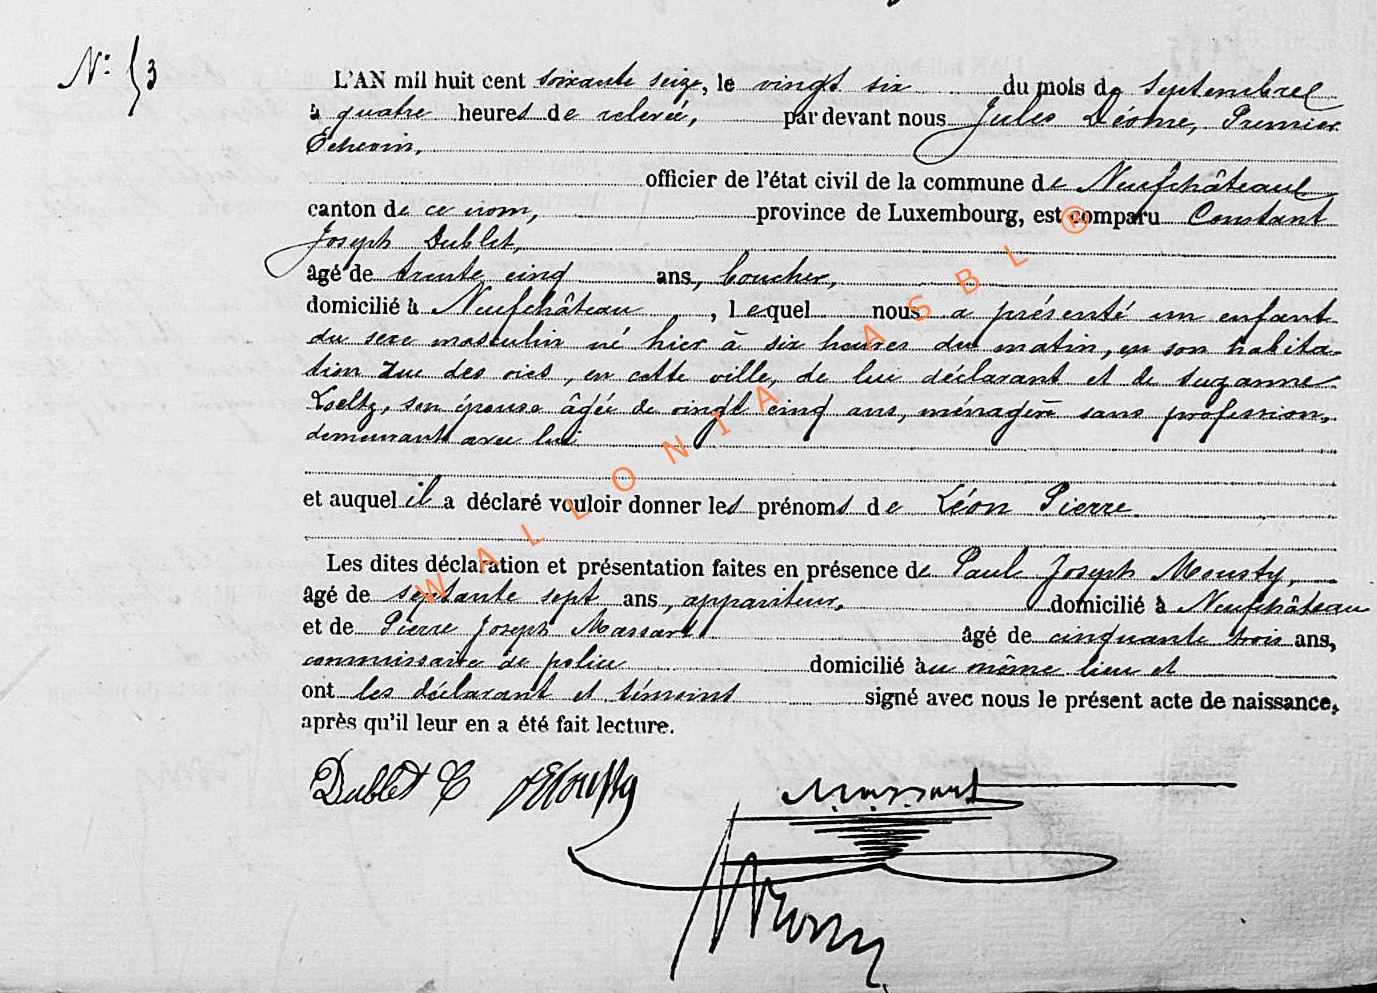 N° 53
L'AN mil huit cent soixante seize, le vingt six du mois de Septembre
à quatre heures de relevée, par devant nous Jules Déome, Premier
Echevin,
officier de l'état civil de la commune de Neufchâteau
canton de ce nom, province de Luxembourg, est comparu Constant
Joseph Dublet,
âgé de trente cinq ans, boucher,
domicilié à Neufchâteau, lequel nous a présenté un enfant
du sexe masculin né hier à six heures du matin, en son habita-
tion rue des oies, en cette ville, de lui déclarant et de Suzanne
Loeltz, son épouse âgée de vingt cinq ans, ménagère sans profession,
demeurant avec lui
et auquel il a déclaré vouloir donner les prénoms de Léon Pierre.
Les dites déclaration et présentation faites en présence de Paul Joseph Mousty,
âgé de septante sept ans, appariteur, domicilié à Neufchâteau
et de Pierre Joseph Massart âgé de cinquante trois ans,
commissaire de police domicilié au même lieu et
ont les déclarant et témoins signé avec nous le présent acte de naissance,
après qu'il leur en a été fait lecture.
Dublet C Mousty Massart
WALLONIA ASBL ®